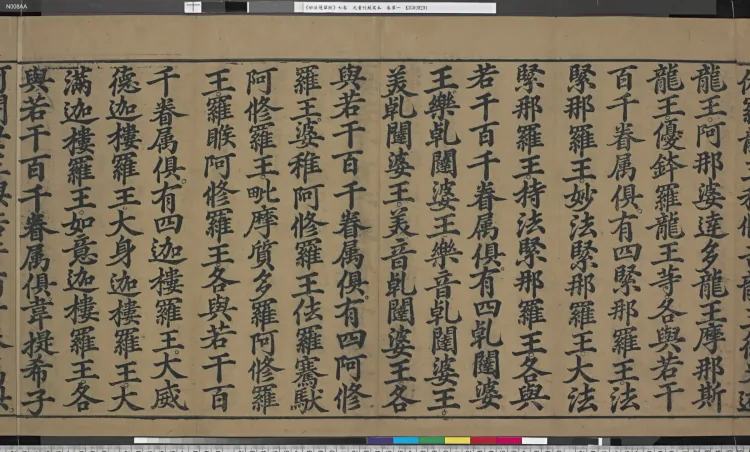 N008AA
龍王阿那婆達多龍王摩那斯
龍王優鉢羅龍王等各與若干
百千眷属俱有四緊那羅王法
緊那羅王妙法緊那羅王大法
緊那羅王持法緊那羅王各與
若千百千眷属俱有四乹闥婆
王樂乹闥婆王樂音乹闥婆王
美乹闥婆王美音乹闥婆王各
與若干百千眷属俱有四阿修
羅王婆稚阿修羅王佉羅騫馱
阿修羅王毗摩質多羅阿修羅
王羅睺阿修羅王各與若干百
千眷属俱有四迦樓羅王大威
德迦樓羅王大身迦樓羅王大
滿迦樓羅王如意迦樓羅王各
與若干百千眷属俱韋提希子